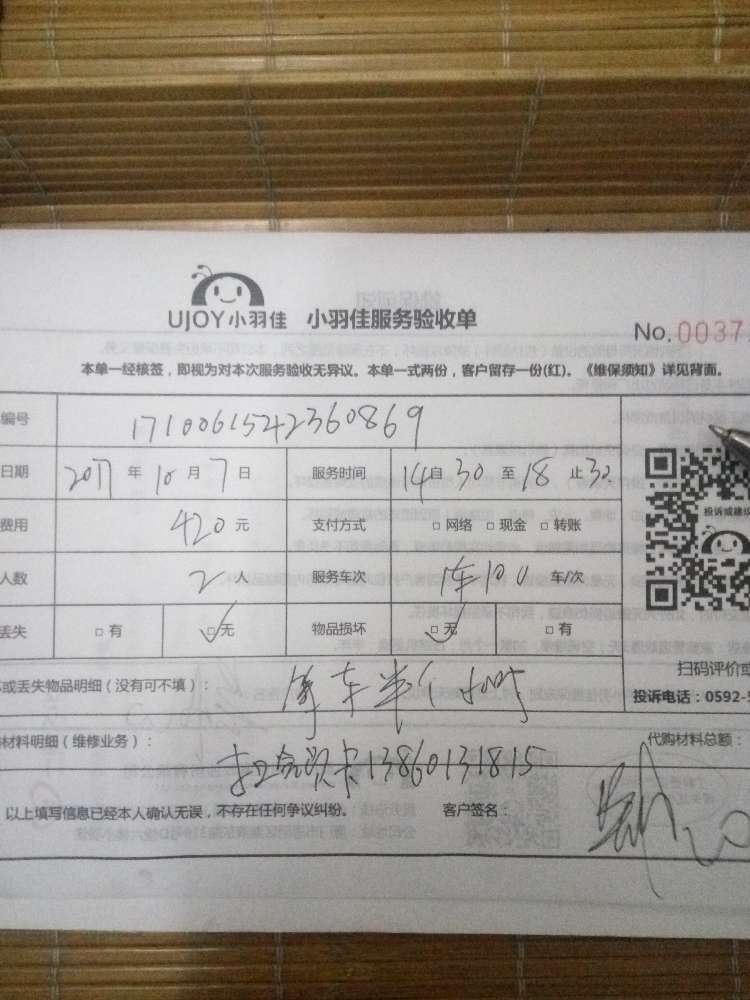 UJOY小羽佳 小羽佳服务验收单
No. 0037
本单一经核签，即视为对本次服务验收无异议。本单一式两份，客户留存一份(红)。《维保须知》详见背面。
编号 1710061542360869
日期 2017 年 10 月 7 日 服务时间 14自30至18止30
费用 420 元 支付方式 □网络 □现金 □转账
人数 2 人 服务车次 1车100 车/次
丢失 □有 □无 物品损坏 □无 □有
投诉或建议
坏或丢失物品明细（没有可不填）： 等车半个小时
扫码评价或
投诉电话：0592-5
材料明细（维修业务）： 代购材料总额：
卡13860131815
以上填写信息已经本人确认无误，不存在任何争议纠纷。 客户签名：